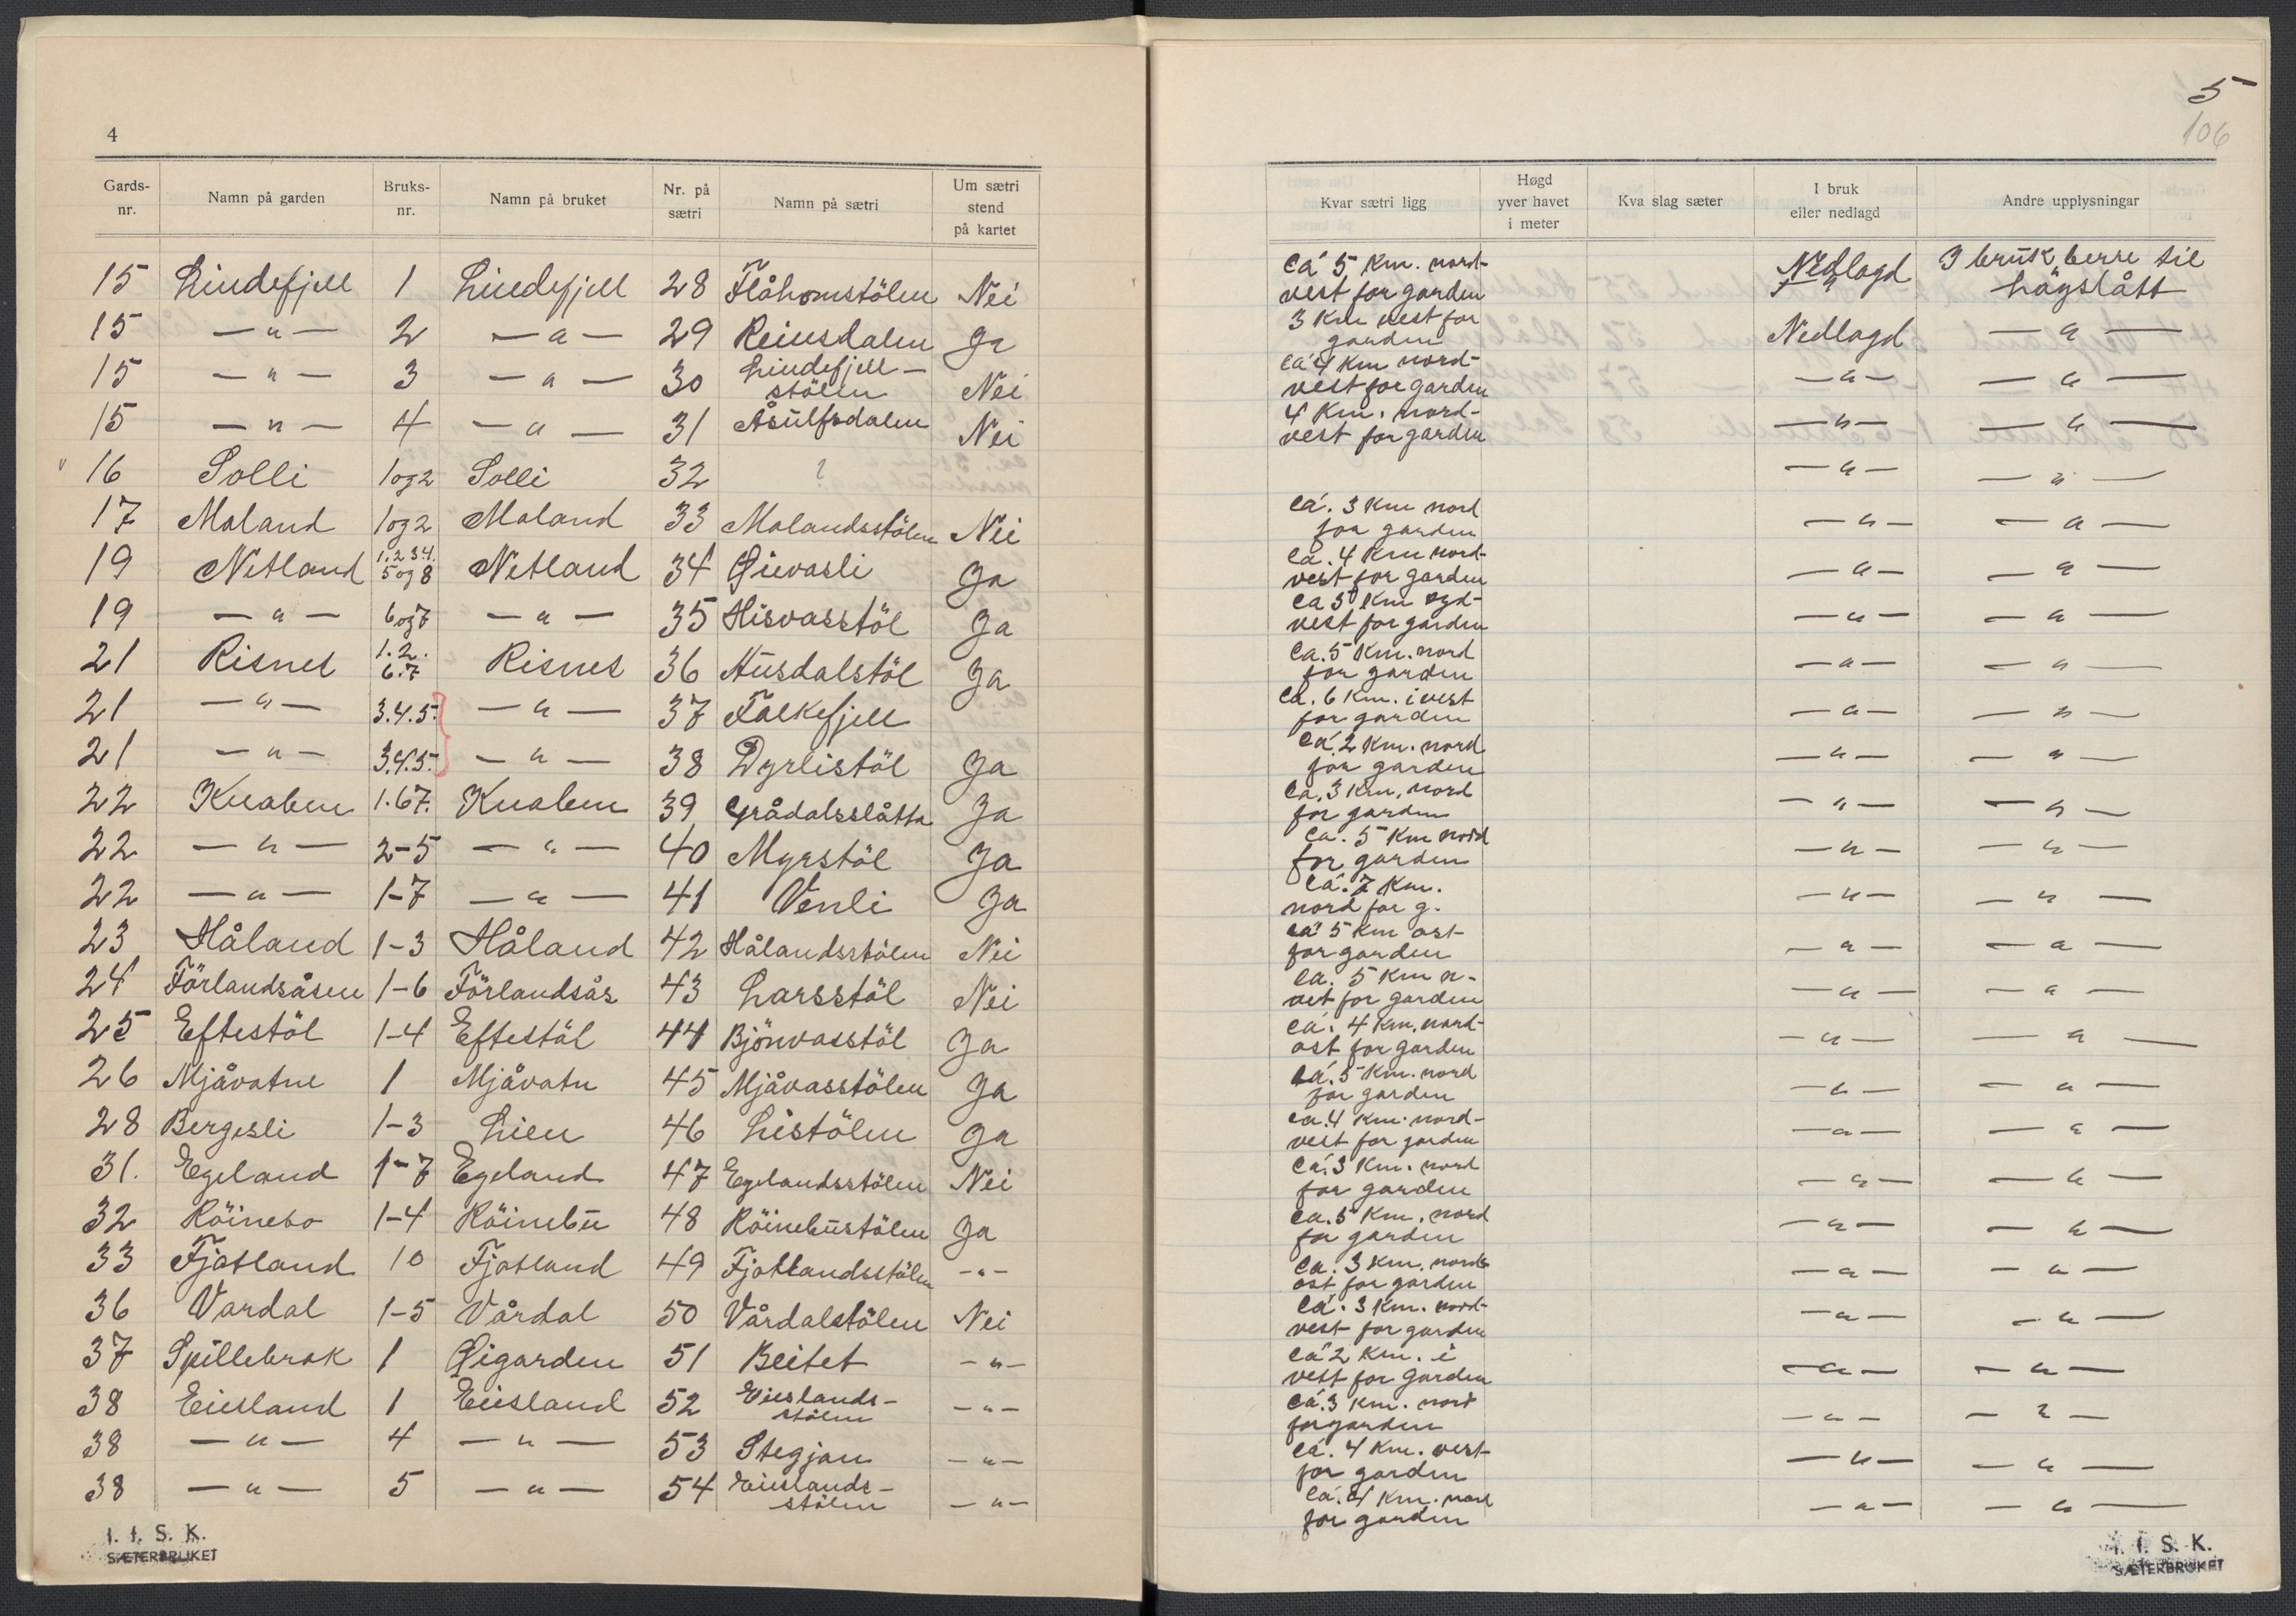 4
Gards-nr. Namn på garden Bruks-nr. Namn på bruket Nr. på sætri Namn på sætri Um sætri stend på kartet
15 Lindefjell 1 Lindefjell 28 Flåhomstölen Nei
15 —"— 2 —"— 29 Reinsdalen Ja
15 —"— 3 —"— 30 Lindefjell-stölen Nei
15 —"— 4 —"— 31 Åsulfsdalen Nei
16 Solli 1og2 Solli 32 ?
17 Moland 1og2 Moland 33 Molandsstölen Nei
19 Netland 1.2 3 4. 5og8 Netland 34 Öievasli Ja
19 —"— 6og7 —"— 35 Hisvasstöl Ja
21 Risnes 1.2. 6.7 Risnes 36 Husdalstöl Ja
21 —"— 3.4.5. —"— 37 Falkefjell
21 —"— 3.4.5. —"— 38 Dyrlistöl Ja
22 Knaben 1.67. Knaben 39 Grådalsslåtta Ja
22 —"— 2-5 —"— 40 Myrstöl Ja
22 —"— 1-7 —"— 41 Venli Ja
23 Håland 1-3 Håland 42 Hålandsstölen Nei
24 Förlandsåsen 1-6 Förlandsås 43 Larsstöl Nei
25 Eftestöl 1-4 Eftestöl 44 Bjönvasstöl Ja
26 Mjåvatne 1 Mjåvatn 45 Mjåvasstölen Ja
28 Bergesli 1-3 Lien 46 Listölen Ja
31. Egeland 1-7 Egeland 47 Egelandsstölen Nei
32 Röinebo 1-4 Röinebu 48 Röinebustölen Ja
33 Fjotland 10 Fjotland 49 Fjotlandsstölen -"-
36 Vardal 1-5 Vårdal 50 Vårdalstölen Nei
37 Spillebrok 1 Øigarden 51 Beitet -"-
38 Eiesland 1 Eiesland 52 Eieslands-stölen -"-
38 —"— 4 —"— 53 Stegjan -"-
38 —"— 5 —"— 54 Eieslands-stölen -"-
I. f. S. K.
SÆTERBRUKET
5
106
Kvar sætri ligg Høgd yver havet i meter Kva slag sæter I bruk eller nedlagd Andre upplysningar
Ca 5 km. nord-vest for garden Nedlagd I bruk berre til höyslått
3 km vest for garden Nedlagd —"—
ca 4 km nord-vest for garden —"— —"—
4 km. nord-vest for garden —"— —"—
—"— —"—
ca. 3 km nord for garden —"— —"—
ca. 4 km nord-vest for garden —"— —"—
ca 5 km syd-vest for garden —"— —"—
ca. 5 km. nord for garden —"— —"—
ca. 6 km. i vest for garden —"— —"—
ca. 2 km. nord for garden —"— —"—
ca. 3 km. nord for garden —"— —"—
ca. 5 km nord for garden —"— —"—
ca. 7 km. nord for g. —"— —"—
ca 5 km ost for garden —"— —"—
ca. 5 km n-vet for garden —"— —"—
ca. 4 km. nord-ost for garden —"— —"—
ca. 5 km. nord for garden —"— —"—
ca. 4 km. nord-vest for garden —"— —"—
ca. 3 km. nord for garden —"— —"—
ca. 5 km. nord for garden —"— —"—
ca. 3 km. nord ost for garden —"— —"—
ca. 3 km. nord-vest for garden —"— —"—
ca 2 km. i vest for garden —"— —"—
ca. 3 km. nord for garden —"— —"—
ca. 4 km. vest for garden —"— —"—
ca. 4 km. nord for garden —"— —"—
I. f. S. K.
SÆTERBRUKET